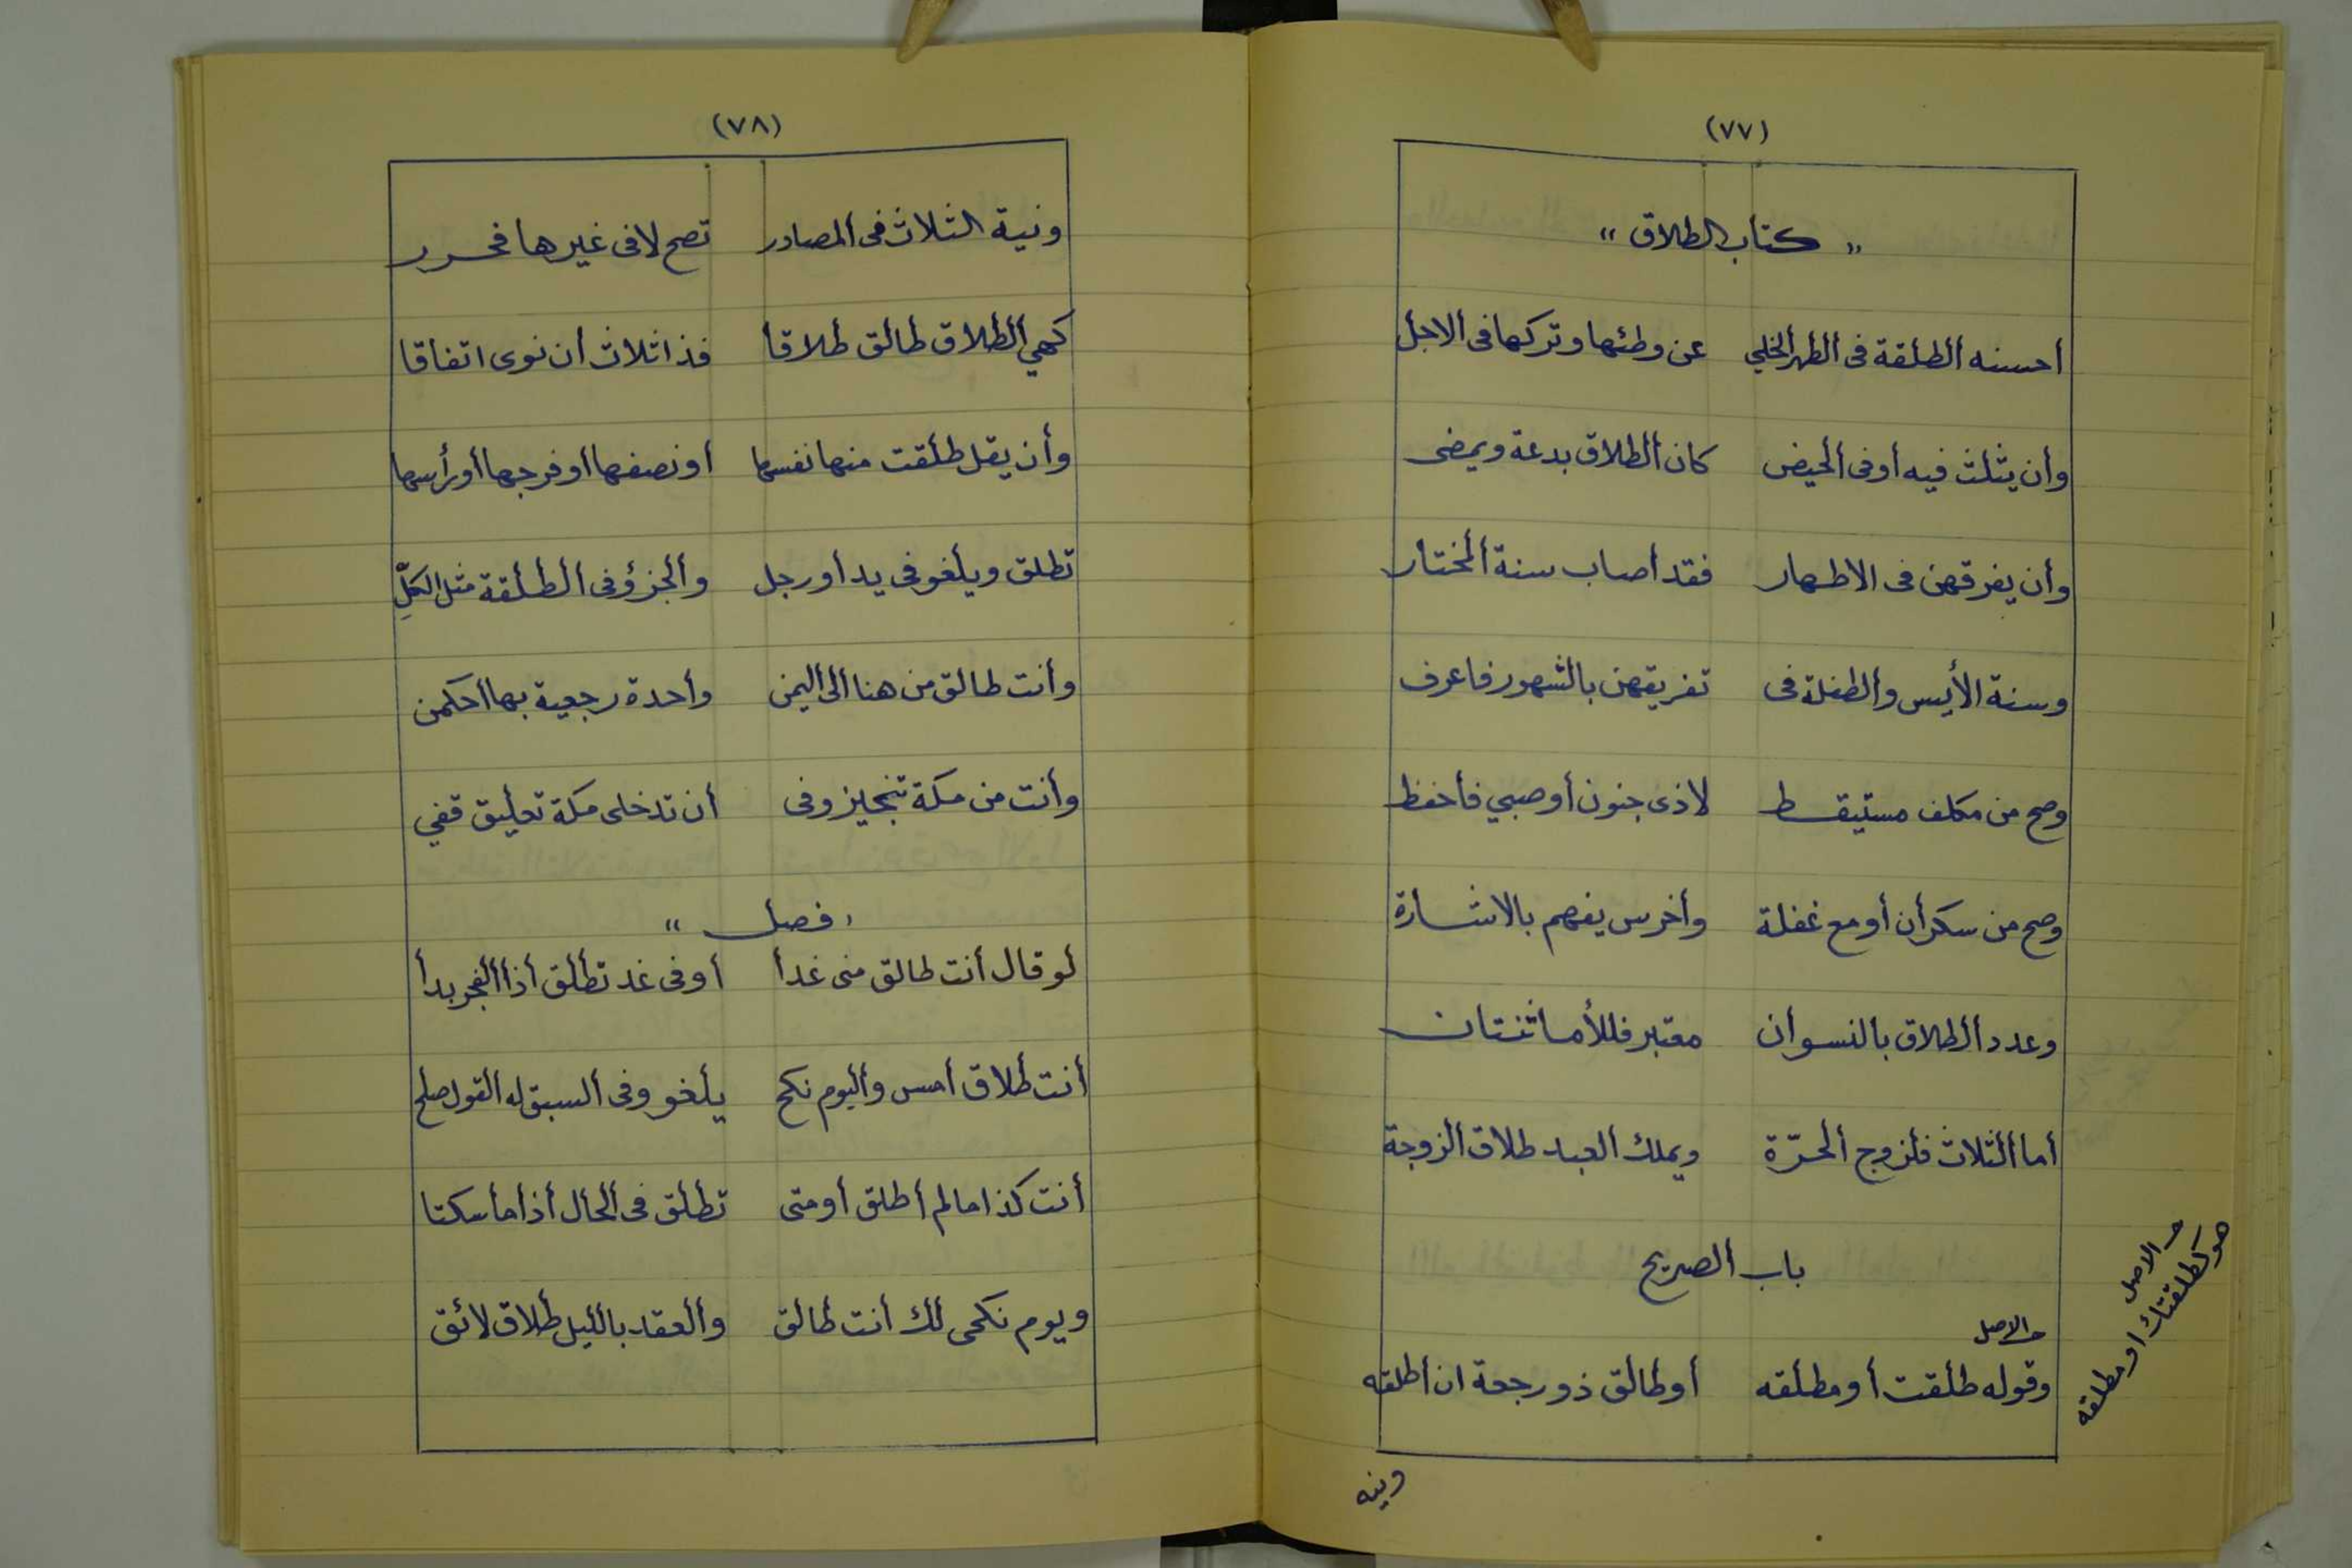 (٧٧)
„ كتاب الطلاق “
أحسنه الطلقة فى الطهر الخلي عن وطئها وتركها فى الاجل
وأن يثلث فيه أوفى الحيض كان الطلاق بدعة ويمضى
وأن يفرقهن فى الاطهار فقد أصاب سنة المختار
وسنة الأيس والطفلة فى تفريقهن بالشهور فاعرف
وصح من مكلف مستيقظ لاذى جنون أو صبي فأحفظ
وصح من سكرأن أو مع غفلة وأخرس يفهم بالاشارة
وعدد الطلاق بالنسوان معتبر فللأما ثنتان
أما الثلاث فلزوج الحرّة ويملك العبد طلاق الزوجة
باب الصريح
والاصل
وقوله طلقت أو مطلقه أو طالق ذو رجعة ان أطلقه
والاصل
هو كطلقتك او مطلقه
ونية
(٧٨)
ونية الثلاث فى المصادر تصح لافى غيرها فحرر
كهي الطلاق طالق طلاقا فذا ثلاث أن نوى اتفاقا
وأن يقل طلقت منها نفسها أو نصفها أو فرجها أو رأسها
تطلق ويلغو فى يد أو رجل والجزؤ فى الطلقة مثل الكلِّ
وأنت طالق من هنا الى اليمن وأحدة رجعية بها أحكمن
وأنت من مكة تنجيز وفى أن تدخلى مكة تعليق قفي
، فصل “
لو قال أنت طالق منى غدا أو فى غد تطلق أذا الفجر بدا
أنت طلاق أمس واليوم نكح يلغو وفى السبق له القول صلح
أنت كذا مالم أطلق أو متى تطلق فى الحال أذا ماسكتا
ويوم نكحى لك أنت طالق والعقد بالليل طلاق لائق